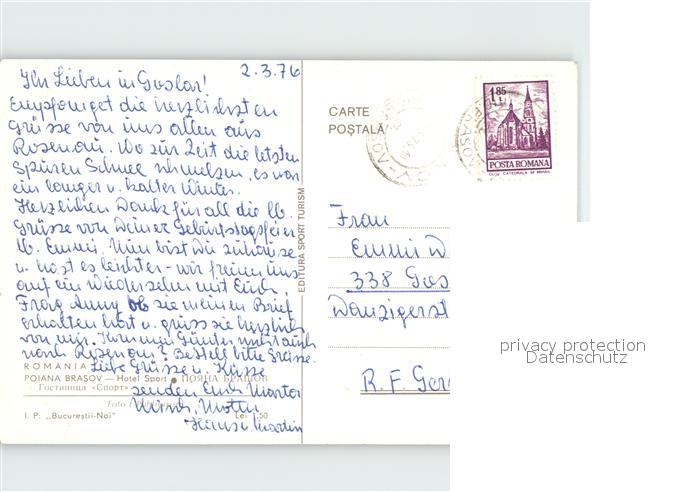 2.3.76
Ihr Lieben in Goslar!
Empfanget die herzlichsten
Grüsse von uns allen aus
Rosenau. Wo zur Zeit die letzten
Spuren Schnee schmelzen, es war
ein langer u. kalter Winter.
Herzlichen Dank für all die lb.
Grüsse von Deiner Geburtstagsfeier
lb. Emmi. Nun bist Du zuhause
u. hast es leichter - wir freuen uns
auf ein Wiedersehn mit Euch.
Frag Anny ob sie meinen Brief
erhalten hat u. grüss sie herzlich
von mir. Kommen Günter auch
nach Rosenau? Bestell bitte Grüsse.
Liebe Grüsse u. Küsse
senden Euch Marta
Hans u. Martin
ROMANIA
POIANA BRAȘOV — Hotel Sport ● ПОЯНА БРАШОВ
Гостиница «Спорт»
Foto
I. P. „Bucureștii-Noi"
Lei 50
EDITURA SPORT TURISM
CARTE
POȘTALĂ
1,85
L
POSTA ROMANA
CLUJ CATEDRALA SF MIHAIL
Frau
Emmi W
338 Gos
Danzigerst
R. F. Ger
privacy protection
Datenschutz